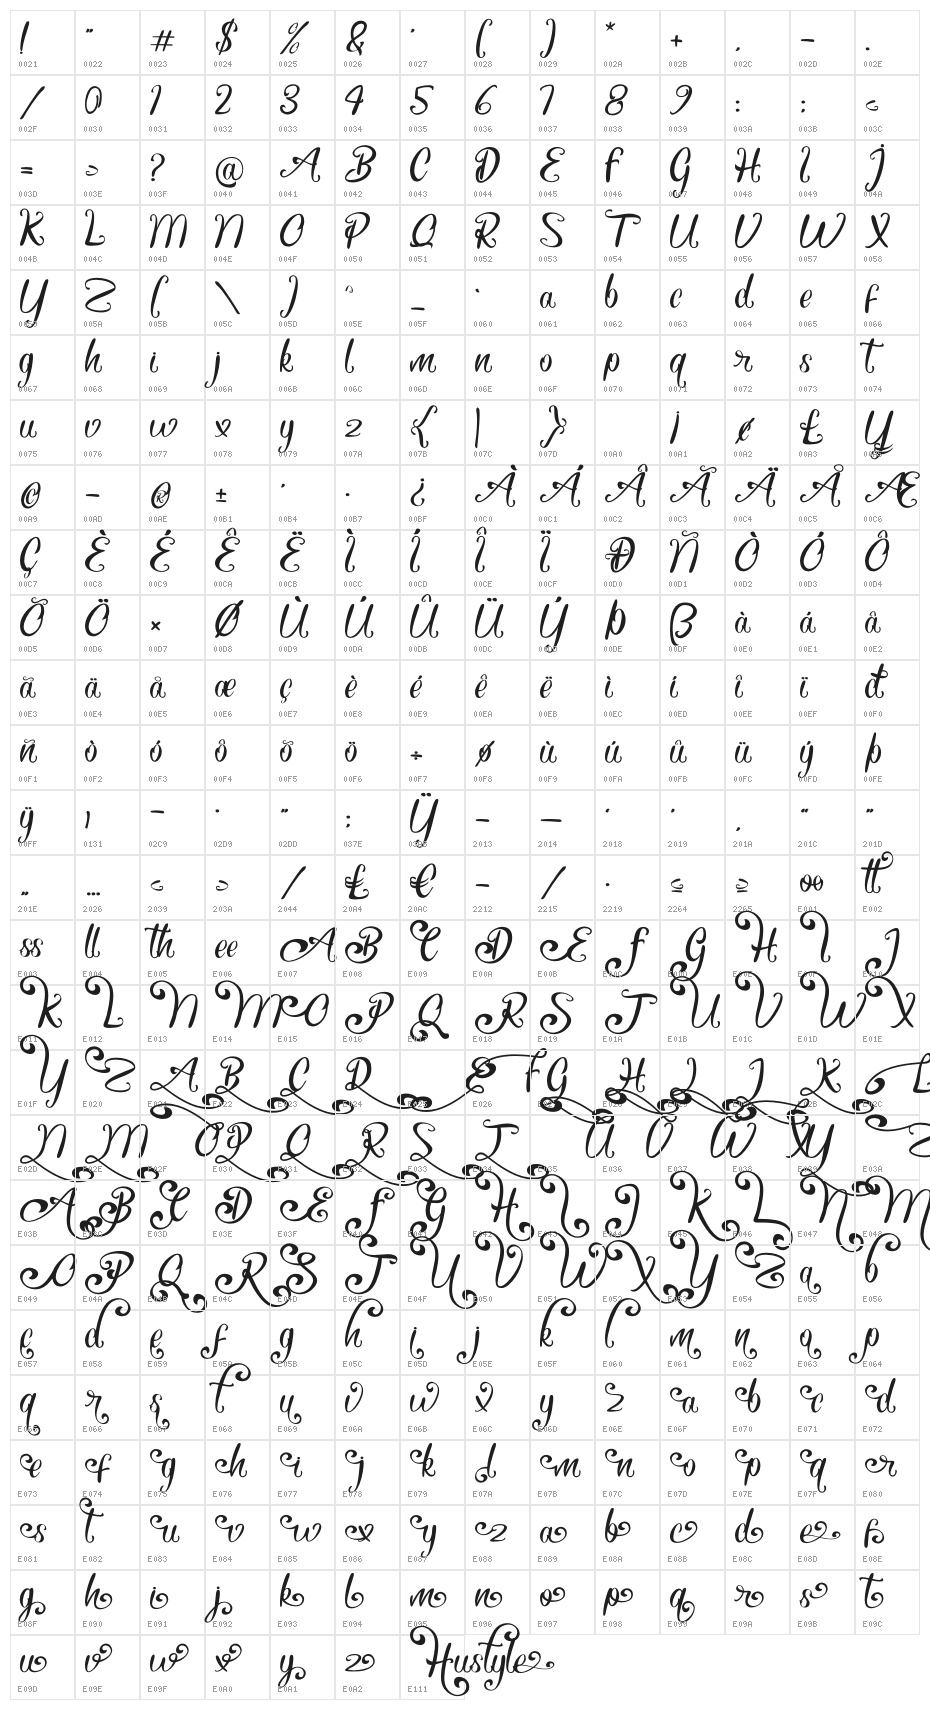 ! " # $ % & ' ( ) * + , - .
0021 0022 0023 0024 0025 0026 0027 0028 0029 002A 002B 002C 002D 002E
/ 0 1 2 3 4 5 6 7 8 9 : ; <
002F 0030 0031 0032 0033 0034 0035 0036 0037 0038 0039 003A 003B 003C
= > ? @ A B C D E F G H I J
003D 003E 003F 0040 0041 0042 0043 0044 0045 0046 0047 0048 0049 004A
K L M N O P Q R S T U V W X
004B 004C 004D 004E 004F 0050 0051 0052 0053 0054 0055 0056 0057 0058
Y Z [ \ ] ^ _ ` a b c d e f
0059 005A 005B 005C 005D 005E 005F 0060 0061 0062 0063 0064 0065 0066
g h i j k l m n o p q r s t
0067 0068 0069 006A 006B 006C 006D 006E 006F 0070 0071 0072 0073 0074
u v w x y z { | } ¡ ¢ £ ¥
0075 0076 0077 0078 0079 007A 007B 007C 007D 00A0 00A1 00A2 00A3 00A5
© - ® ± ´ · ¿ À Á Â Ã Ä Å Æ
00A9 00AD 00AE 00B1 00B4 00B7 00BF 00C0 00C1 00C2 00C3 00C4 00C5 00C6
Ç È É Ê Ë Ì Í Î Ï Ð Ñ Ò Ó Ô
00C7 00C8 00C9 00CA 00CB 00CC 00CD 00CE 00CF 00D0 00D1 00D2 00D3 00D4
Õ Ö × Ø Ù Ú Û Ü Ý Þ ß à á â
00D5 00D6 00D7 00D8 00D9 00DA 00DB 00DC 00DD 00DE 00DF 00E0 00E1 00E2
ã ä å æ ç è é ê ë ì í î ï ð
00E3 00E4 00E5 00E6 00E7 00E8 00E9 00EA 00EB 00EC 00ED 00EE 00EF 00F0
ñ ò ó ô õ ö ÷ ø ù ú û ü ý þ
00F1 00F2 00F3 00F4 00F5 00F6 00F7 00F8 00F9 00FA 00FB 00FC 00FD 00FE
ÿ ı ˉ ˙ ˝ ; Ÿ – — ‘ ’ ‚ “ ”
00FF 0131 02C9 02D9 02DD 037E 2013 2014 2018 2019 201A 201C 201D
„ … ‹ › ⁄ ₤ € − ∕ ∙ ≤ ≥ oo tt
201E 2026 2039 203A 2044 20A4 20AC 2212 2215 2219 2264 2265 E001 E002
ss ll th ee A B C D E F G H I J
E003 E004 E005 E006 E007 E008 E009 E00A E00B E00C E00D E00E E00F E010
K L N M O P Q R S T U V W X
E011 E012 E013 E014 E015 E016 E017 E018 E019 E01A E01B E01C E01D E01E
Y Z A B C D E F G H I J K L
E01F E020 E021 E022 E023 E024 E025 E026 E027 E028 E029 E02A E02B E02C
N M O P Q R S T U V W X Y Z
E02D E02E E02F E030 E031 E032 E033 E034 E035 E036 E037 E038 E039 E03A
A B C D E F G H I J K L N M
E03B E03C E03D E03E E03F E040 E041 E042 E043 E044 E045 E046 E047 E048
O P Q R S T U V W X Y Z a b
E049 E04A E04B E04C E04D E04E E04F E050 E051 E052 E053 E054 E055 E056
c d e f g h i j k l m n o p
E057 E058 E059 E05A E05B E05C E05D E05E E05F E060 E061 E062 E063 E064
q r s t u v w x y z a b c d
E065 E066 E067 E068 E069 E06A E06B E06C E06D E06E E06F E070 E071 E072
e f g h i j k l m n o p q r
E073 E074 E075 E076 E077 E078 E079 E07A E07B E07C E07D E07E E07F E080
s t u v w x y z a b c d e f
E081 E082 E083 E084 E085 E086 E087 E088 E089 E08A E08B E08C E08D E08E
g h i j k l m n o p q r s t
E08F E090 E091 E092 E093 E094 E095 E096 E097 E098 E099 E09A E09B E09C
u v w x y z Hustyle
E09D E09E E09F E0A0 E0A1 E0A2 E111